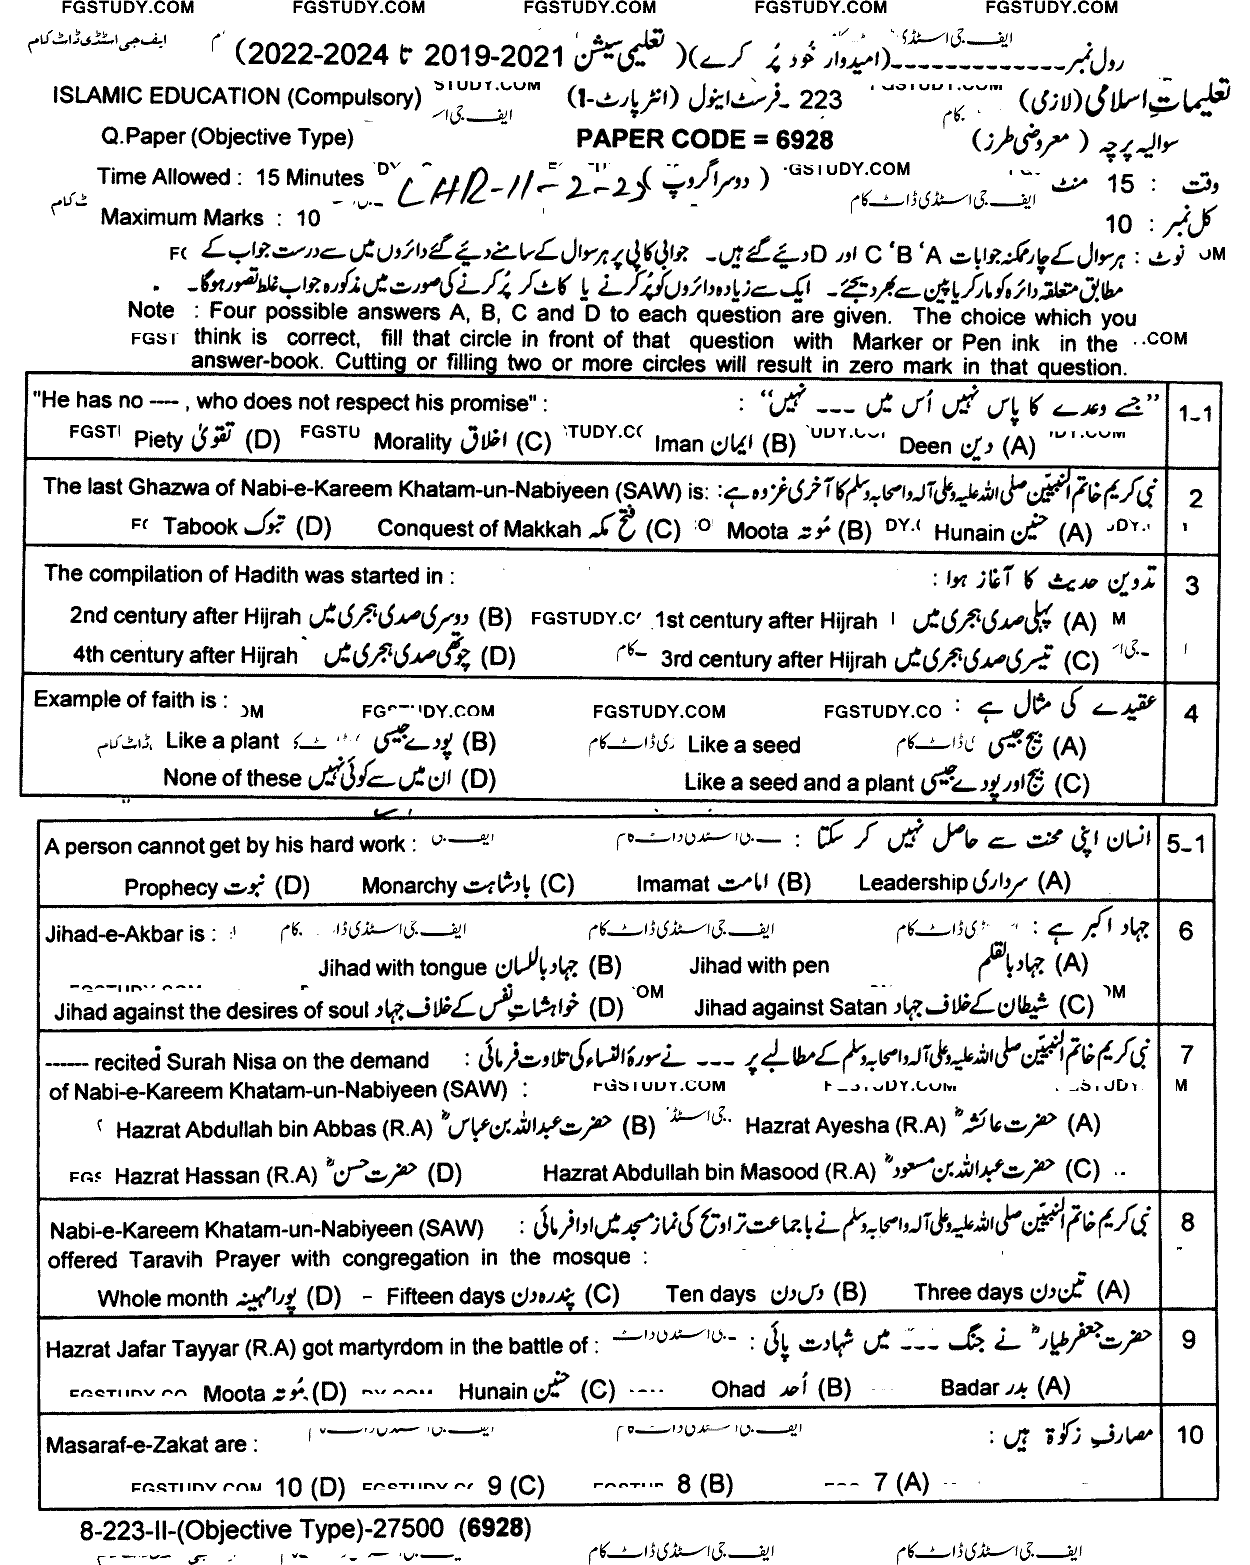 FGSTUDY.COM FGSTUDY.COM FGSTUDY.COM FGSTUDY.COM FGSTUDY.COM
ایف جی اسٹڈی ڈاٹ کام
رول نمبر ------------ (امیدوار خود پُر کرے) (تعلیمی سیشن 2021-2019 تا 2024-2022)
ISLAMIC EDUCATION (Compulsory) 223 ـ فرسٹ اینول (انٹر پارٹ-1) تعلیماتِ اسلامی (لازمی)
Q.Paper (Objective Type) PAPER CODE = 6928 سوالیہ پرچہ (معروضی طرز)
Time Allowed : 15 Minutes LHR-11-2-23 (دوسرا گروپ) وقت : 15 منٹ
Maximum Marks : 10 کل نمبر : 10
نوٹ : ہر سوال کے چار ممکنہ جوابات A ' B ' C اور D دیئے گئے ہیں۔ جوابی کاپی پر ہر سوال کے سامنے دیئے گئے دائروں میں سے درست جواب کے
مطابق متعلقہ دائرہ کو مارکر یا پین سے بھر دیجئے۔ ایک سے زیادہ دائروں کو پُر کرنے یا کاٹ کر پُر کرنے کی صورت میں مذکورہ جواب غلط تصور ہوگا۔
Note : Four possible answers A, B, C and D to each question are given. The choice which you
think is correct, fill that circle in front of that question with Marker or Pen ink in the
answer-book. Cutting or filling two or more circles will result in zero mark in that question.
"He has no ---- , who does not respect his promise" : "جسے وعدے کا پاس نہیں اُس میں ـ ـ ـ نہیں" : 1-1
Piety تقویٰ (D) Morality اخلاق (C) Iman ایمان (B) Deen دین (A)
The last Ghazwa of Nabi-e-Kareem Khatam-un-Nabiyeen (SAW) is: نبی کریم خاتم النبیّین صلی اللہ علیہ وعلی آلہ واصحابہ وسلم کا آخری غزوہ ہے : 2
Tabook تبوک (D) Conquest of Makkah فتح مکہ (C) Moota مُوتہ (B) Hunain حنین (A)
The compilation of Hadith was started in : تدوین حدیث کا آغاز ہوا : 3
2nd century after Hijrah دوسری صدی ہجری میں (B) 1st century after Hijrah پہلی صدی ہجری میں (A)
4th century after Hijrah چوتھی صدی ہجری میں (D) 3rd century after Hijrah تیسری صدی ہجری میں (C)
Example of faith is : عقیدے کی مثال ہے : 4
FGSTUDY.COM
Like a plant پودے جیسی (B) Like a seed بیج جیسی (A)
None of these ان میں سے کوئی نہیں (D) Like a seed and a plant بیج اور پودے جیسی (C)
A person cannot get by his hard work : انسان اپنی محنت سے حاصل نہیں کر سکتا : 5-1
Prophecy نبوت (D) Monarchy بادشاہت (C) Imamat امامت (B) Leadership سرداری (A)
Jihad-e-Akbar is : جہاد اکبر ہے : 6
Jihad with tongue جہاد باللسان (B) Jihad with pen جہاد بالقلم (A)
Jihad against the desires of soul خواہشاتِ نفس کے خلاف جہاد (D) Jihad against Satan شیطان کے خلاف جہاد (C)
------ recited Surah Nisa on the demand نبی کریم خاتم النبیّین صلی اللہ علیہ وعلی آلہ واصحابہ وسلم کے مطالبے پر ـ ـ ـ نے سورۃ النساء کی تلاوت فرمائی : 7
of Nabi-e-Kareem Khatam-un-Nabiyeen (SAW) : FGSTUDY.COM
Hazrat Abdullah bin Abbas (R.A) حضرت عبداللہ بن عباسؓ (B) Hazrat Ayesha (R.A) حضرت عائشہؓ (A)
Hazrat Hassan (R.A) حضرت حسنؓ (D) Hazrat Abdullah bin Masood (R.A) حضرت عبداللہ بن مسعودؓ (C)
Nabi-e-Kareem Khatam-un-Nabiyeen (SAW) نبی کریم خاتم النبیّین صلی اللہ علیہ وعلی آلہ واصحابہ وسلم نے باجماعت تراویح کی نماز مسجد میں ادا فرمائی : 8
offered Taravih Prayer with congregation in the mosque :
Whole month پورا مہینہ (D) Fifteen days پندرہ دن (C) Ten days دس دن (B) Three days تین دن (A)
Hazrat Jafar Tayyar (R.A) got martyrdom in the battle of : حضرت جعفر طیارؓ نے جنگ ـ ـ ـ میں شہادت پائی : 9
Moota مُوتہ (D) Hunain حنین (C) Ohad اُحد (B) Badar بدر (A)
Masaraf-e-Zakat are : مصارفِ زکوٰۃ ہیں : 10
10 (D) 9 (C) 8 (B) 7 (A)
8-223-II-(Objective Type)-27500 (6928)
ایف جی اسٹڈی ڈاٹ کام